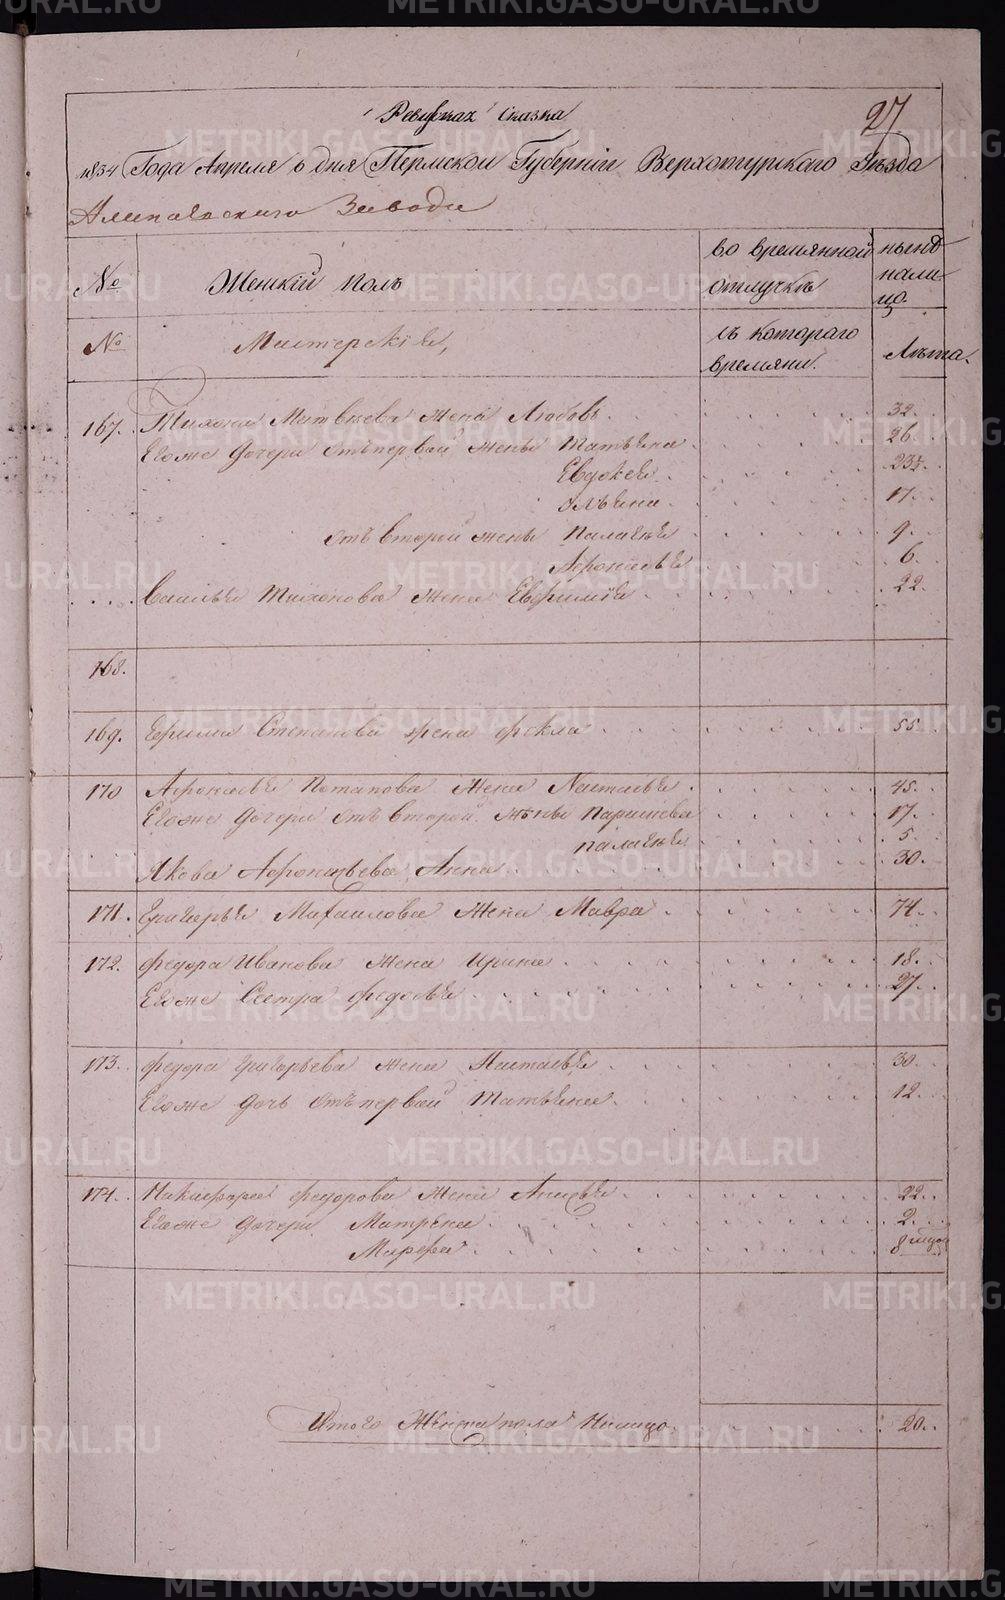 Ревизская Сказка
27
1834 Года Апреля 6 дня Пермской Губернии Верхотурского Уезда
Алапаевского Завода
№ Женский полъ во времянной отлучке ныне налицо
№ Мастерские, съ котораго времяни. Лета.
167. Тихона Матвеева жена Любовь 32.
Егоже дочери отъ первой жены Татьяна 26.
Евдокея
Ульяна 17.
отъ второй жены Палагея 9.
Афонасья 6.
Тихонова жена Евфимия 22.
168.
169. Ефима Степанова жена Фекла 55
170 Афонасья Потапова жена Настасья 45.
Егоже дочери отъ второй жены 17.
палагея 5.
Якова Афонасьева Анна 30.
171. Григорья Махаилова жена Мавра 74.
172. Федора Иванова жена Ирина 18.
Егоже Сестра Федосья 27.
173. Федора Григорьева жена Настасья 30.
Егоже дочь отъ первой Татьяна 12.
174. Никифора Федорова жена Анисья 22.
Егоже дочери Матрена 2.
Марфа 8
Итого Женска пола Налицо 20.
METRIKI.GASO-URAL.RU